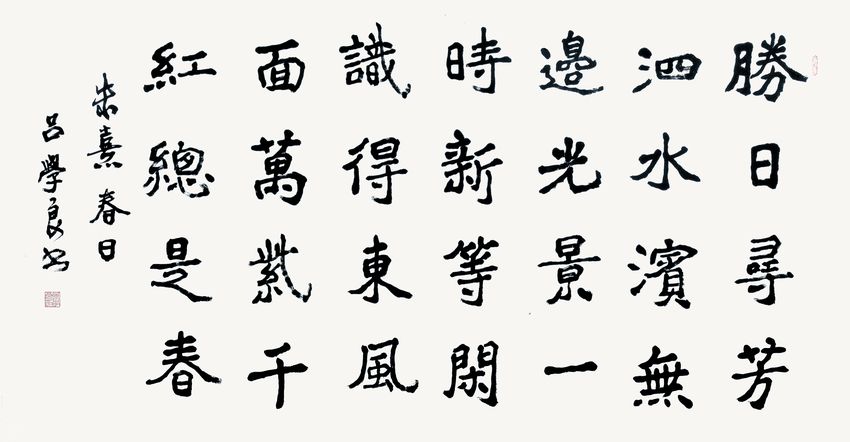 勝日尋芳
泗水濱無
邊光景一
時新等閑
識得東風
面萬紫千
紅總是春
朱熹春日
吕學良书